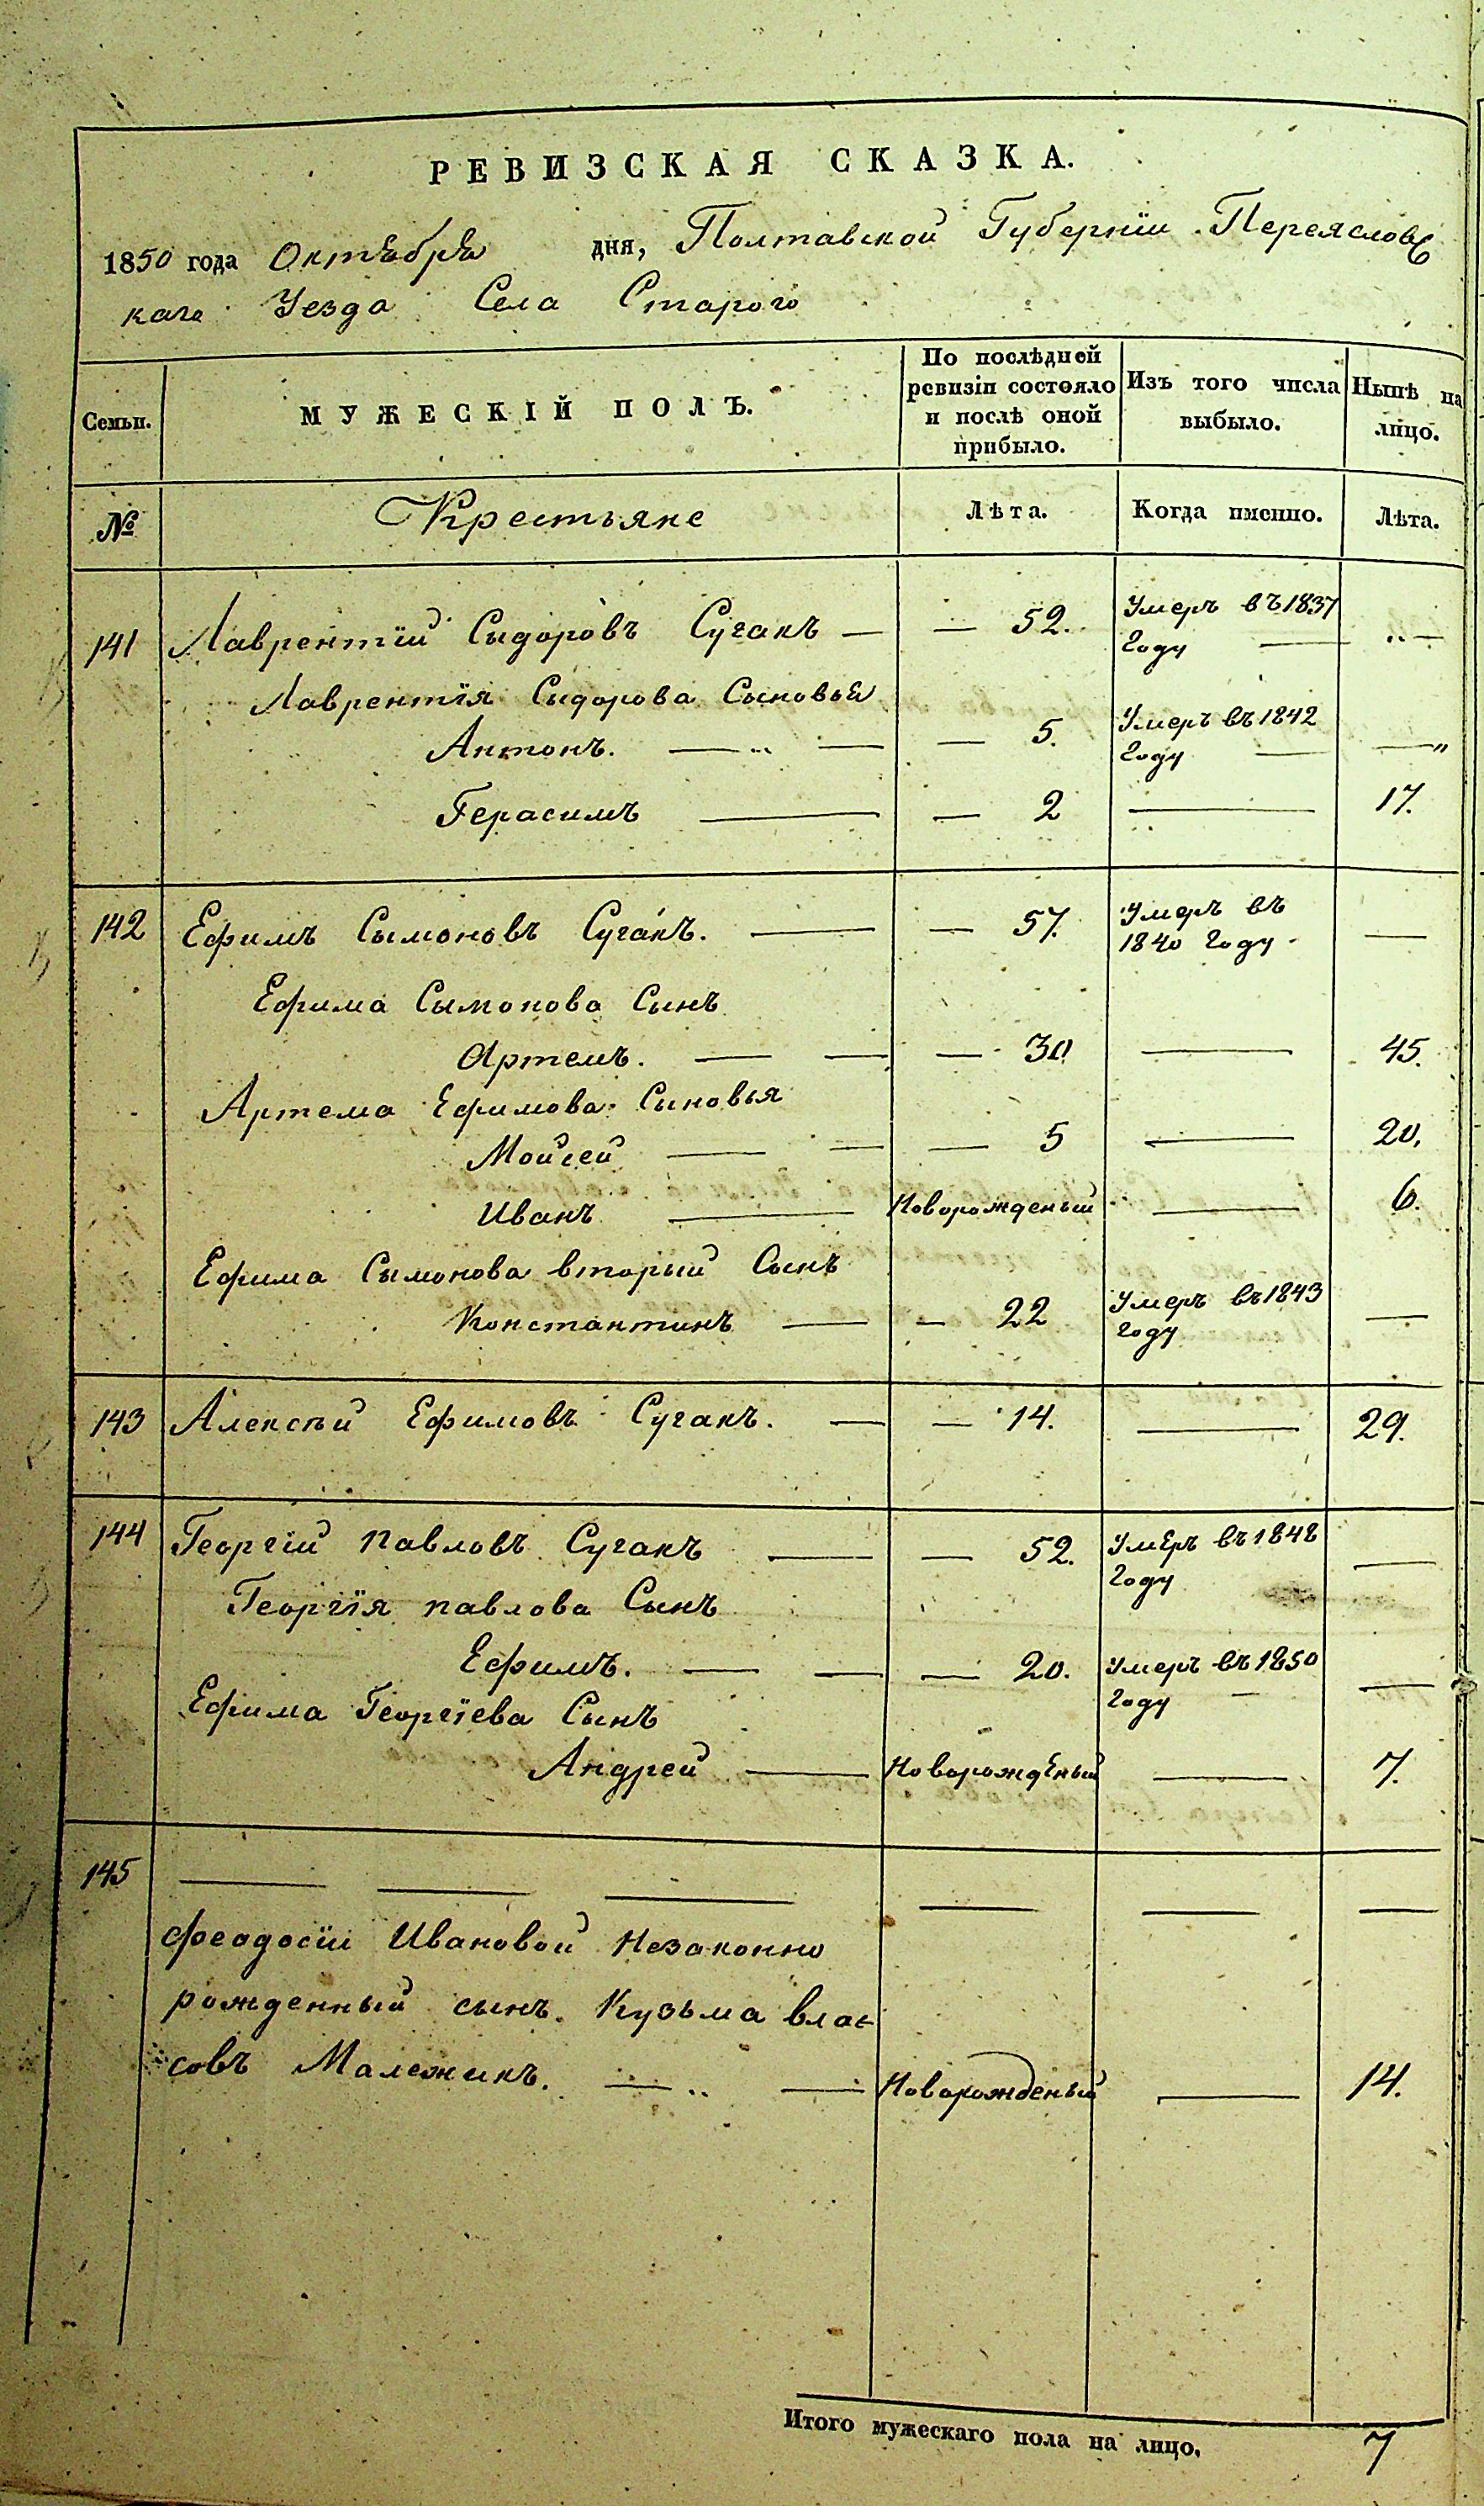 РЕВИЗСКАЯ СКАЗКА.
1850 года Октября дня, Полтавской Губерніи Переяслов
каго Уезда Села Старого
Семьи.
МУЖЕСКІЙ ПОЛЪ.
По послѣдней ревизіи состояло и послѣ оной прибыло.
Изъ того числа выбыло.
Нынѣ на лицо.
№ Крестьяне Лѣта. Когда именно. Лѣта.
141 Лаврентій Сыдоровъ Сугакъ — — 52. Умеръ въ 1837 году — „ —
Лаврентія Сыдорова Сыновья
Антонъ. — „ — — 5. Умеръ въ 1842 году — — „
Герасимъ — — 2 — 17.
142 Ефимъ Сымоновъ Сугакъ. — — 57. Умеръ въ 1840 году —
Ефима Сымонова Сынъ
Артемъ. — — — 30 — 45.
Артема Ефимова Сыновья
Моисей — — — 5 — 20.
Иванъ — Новорожденый — 6.
Ефима Сымонова вторый Сынъ
Константинъ — — 22 Умеръ въ 1843 году —
143 Алексѣй Ефимовъ Сугакъ. — — 14. — 29.
144 Георгій Павловъ Сугакъ — — 52. Умеръ въ 1848 году —
Георгія павлова Сынъ
Ефимъ. — — — 20. Умеръ въ 1850 году — —
Ефима Георгіева Сынъ
Андрей — Новорожденый — 7.
145 — — — — — —
Феодосіи Ивановой Незаконно
рожденный сынъ Кузьма Влас
совъ Малежикъ. — „ — Новорожденый — 14.
Итого мужескаго пола на лицо. 7